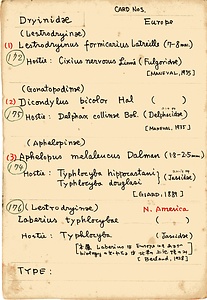 CARD NOS.
Dryinidae Europe
(Lestrodryinse)
(1) Lestrodryinus formicarius Latreille (7-8mm)
172 Hostie: Cixius nervosus Linné (Fulgoridae)
[MANEVAL, 1935]
(Gonatopodinse)
(2) Dicondylus bicolor Hal ( )
175 Hostie: Delphax collinse Boh. (Delphacidae)
[MANEVAL, 1935]
(Aphelopinse)
(3) Aphelopus melaleucus Dalman (1.8-2.5mm)
174 Hostie: Typhlocyba hippocastani
Typhlocyba douglasi (Jassidae)
[GIARD, 1889]
176 (Lestrodryinse) N. America
Laberius typhlocybae ( )
Hostie: Typhlocyba (Jassidae)
Laberius Europe
biology
TYPE: